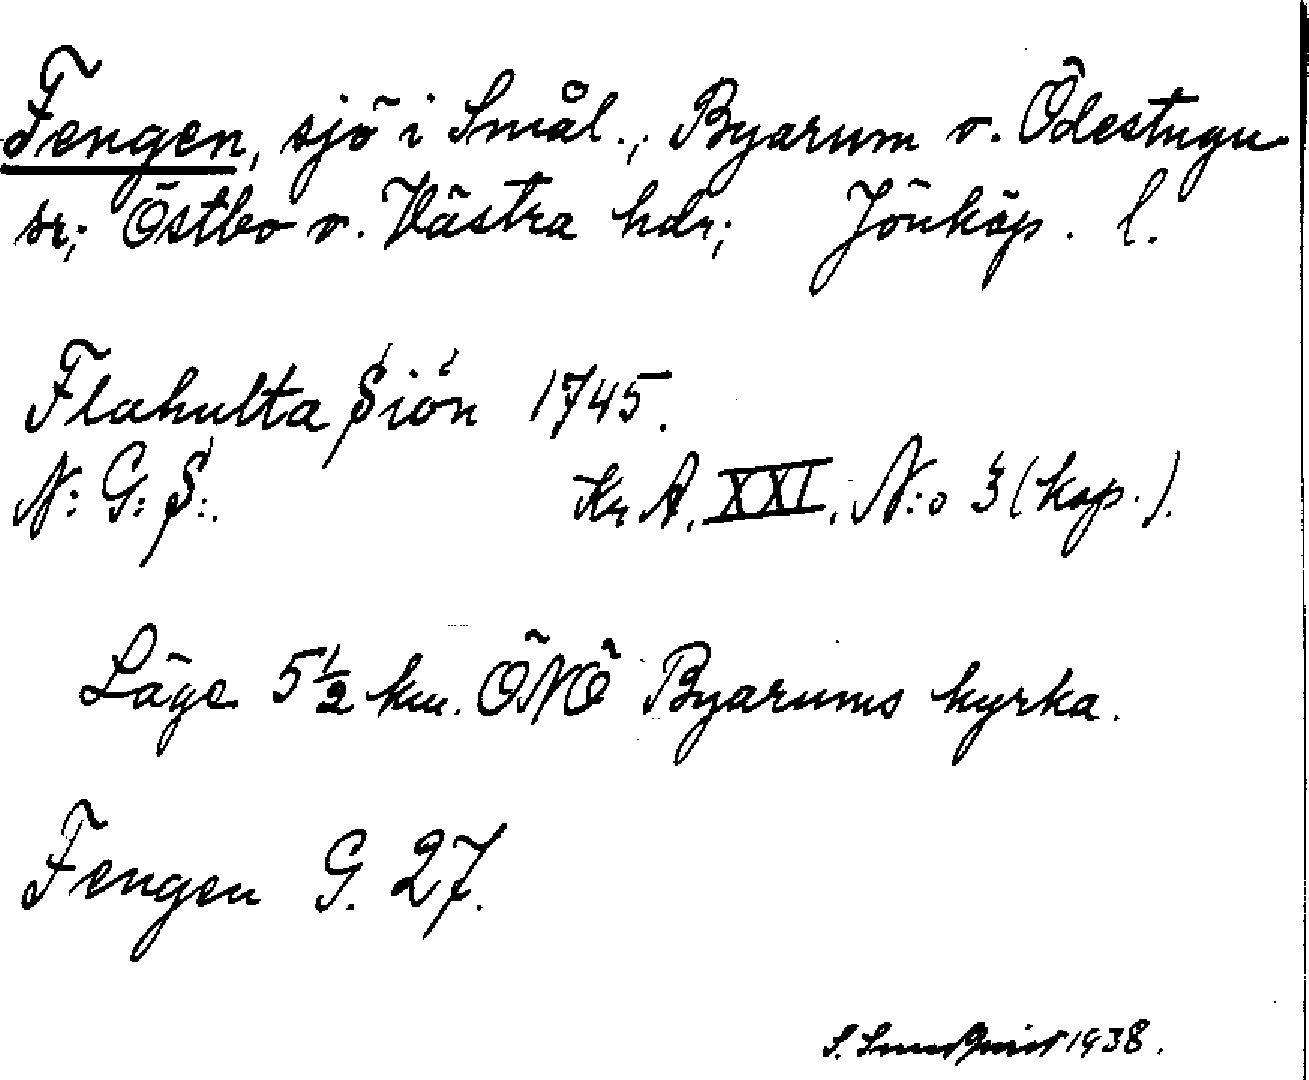 Fengen, sjö i Smål., Byarum o. Ödestugu
sr; Östbo o. Västra hdr; Jönköp. l.
Flahulta Siön 1745.
N: G: S:.
Kr A. XXI. N:o 3 (kop.).
Läge 5 1/2 km. ÖNÖ Byarums kyrka.
Fengen G. 27.
S. 1938.